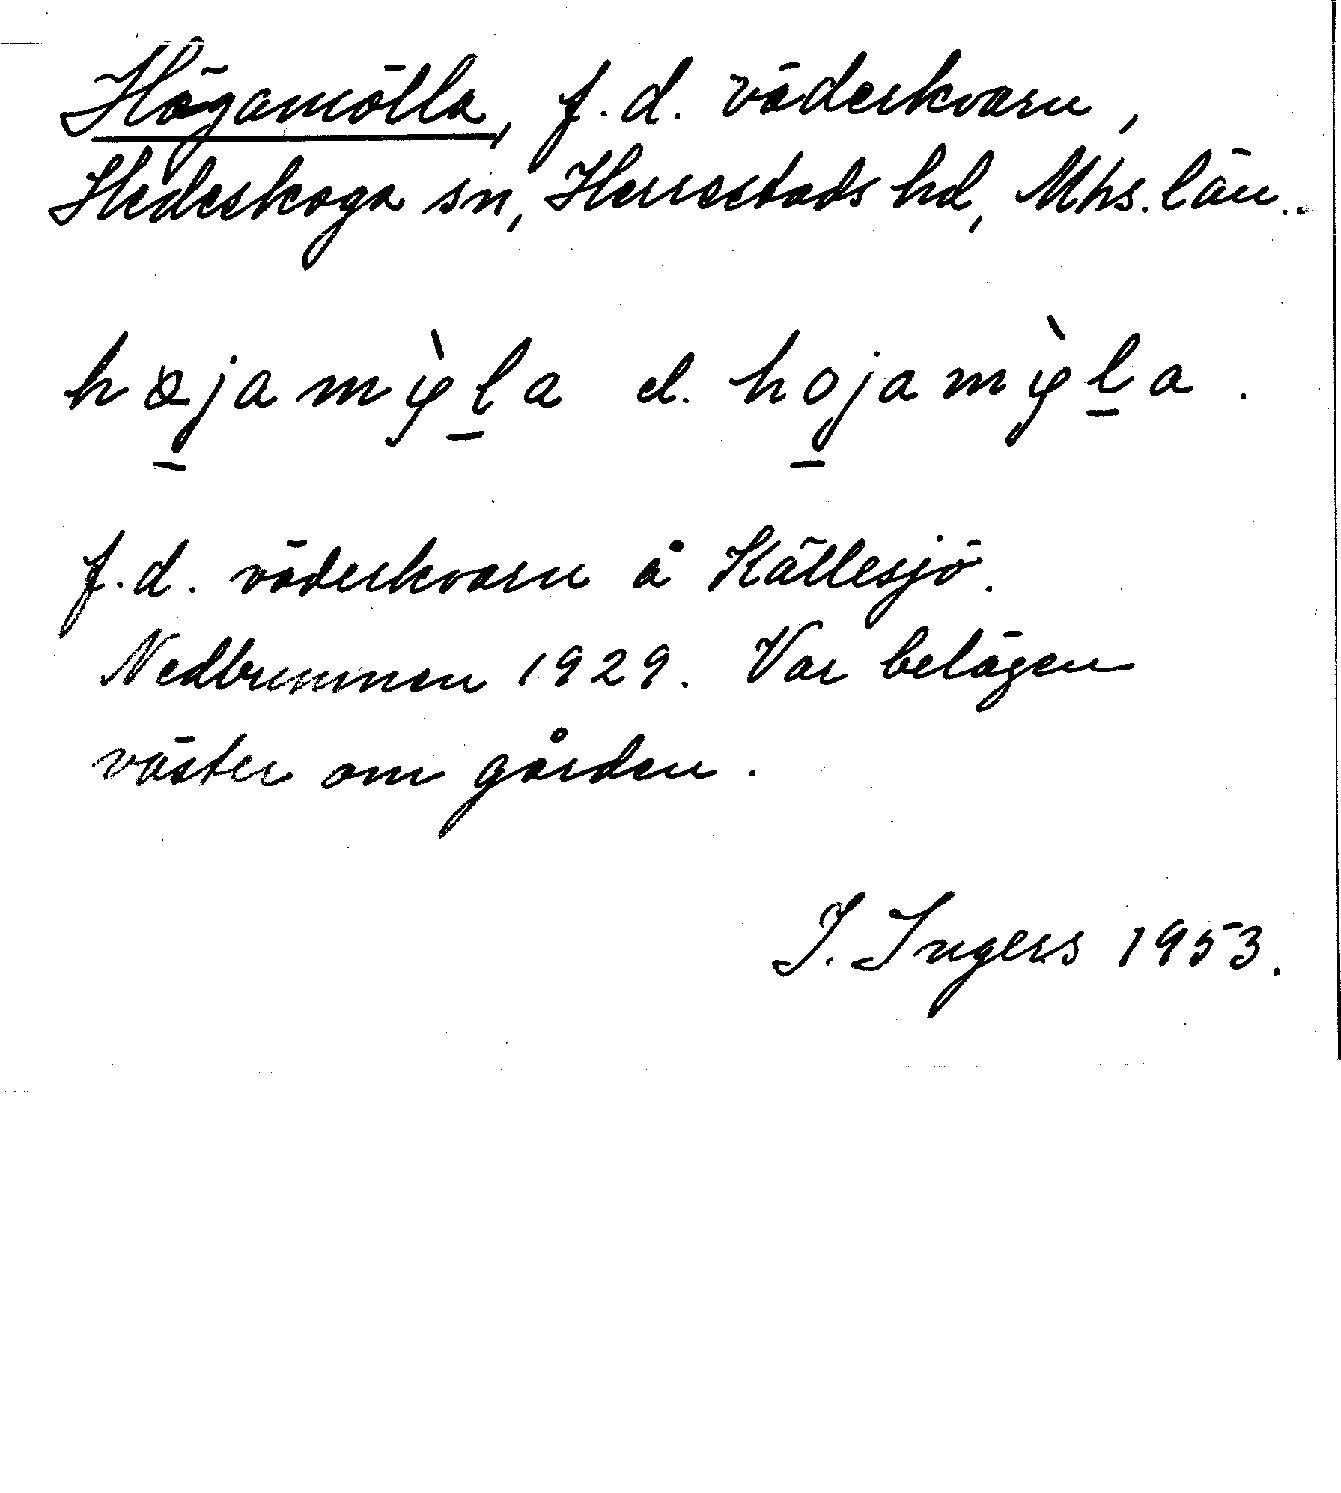 Högamölla, f.d. väderkvarn,
Hedeskoga sn, Herrestads hd, Mhs. län.
højamỳla el. hojamỳla.
f.d. väderkvarn å Källesjö.
Nedbrunnen 1929. Var belägen
väster om gården.
I. Ingers 1953.